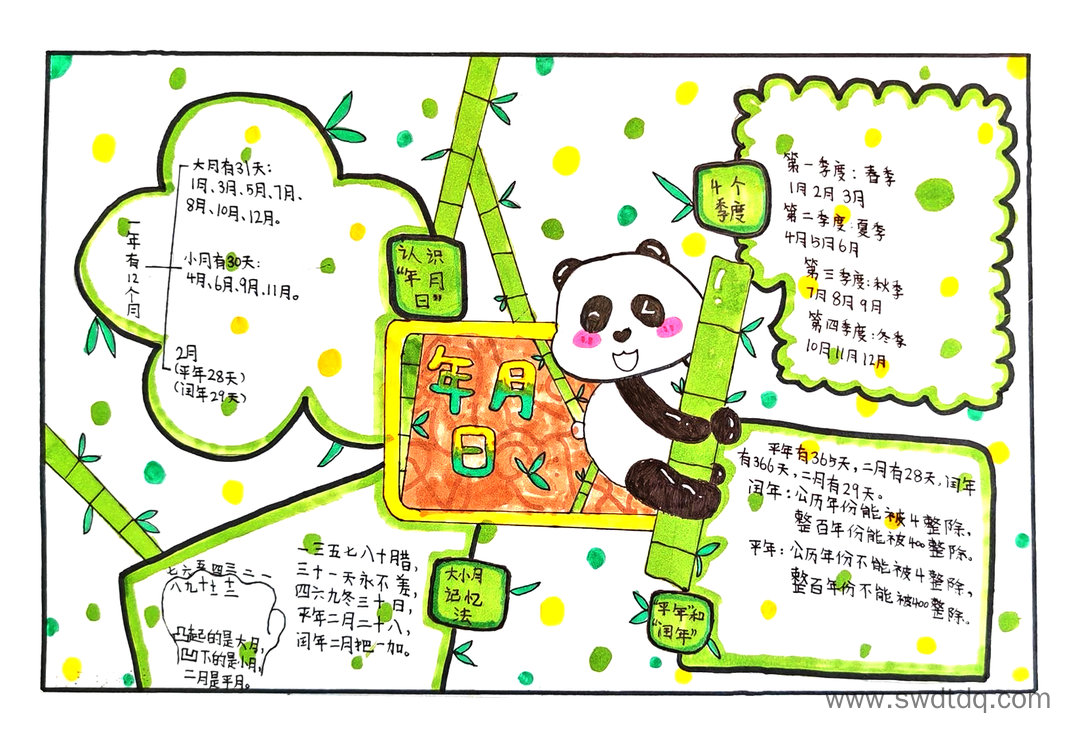 年月
日
认识
“年月
日”
一年有12个月
大月有31天：
1月、3月、5月、7月、
8月、10月、12月。
小月有30天：
4月、6月、9月、11月。
2月
(平年28天)
(闰年29天)
4个
季度
第一季度：春季
1月2月3月
第二季度：夏季
4月5月6月
第三季度：秋季
7月8月9月
第四季度：冬季
10月11月12月
大小月
记忆
法
七六五四三二一
八九十十一十二
凸起的是大月，
凹下的是小月，
二月是平月。
一三五七八十腊，
三十一天永不差，
四六九冬三十日，
平年二月二十八，
闰年二月把一加。
“平年”和
“闰年”
平年有365天，二月有28天，闰年
有366天，二月有29天。
闰年：公历年份能被4整除，
整百年份能被400整除。
平年：公历年份不能被4整除，
整百年份不能被400整除。
www.swdtdq.com